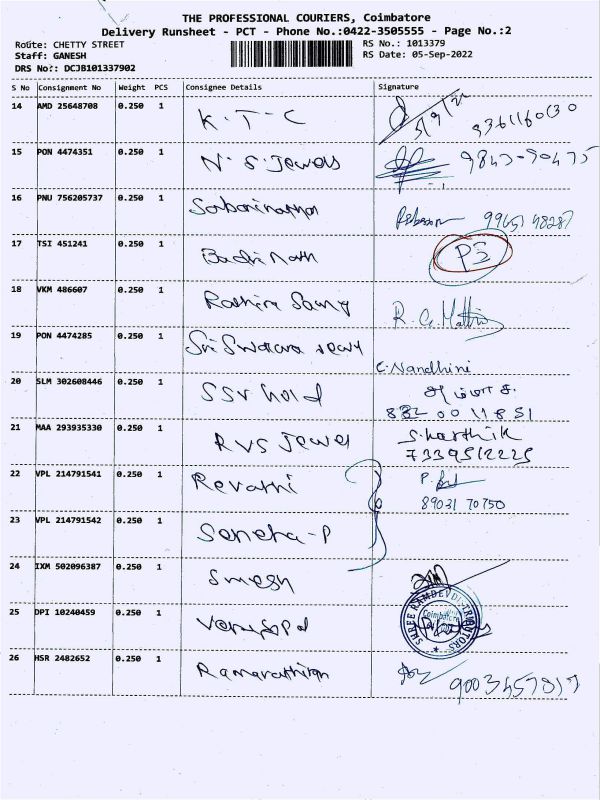 THE PROFESSIONAL COURIERS, Coimbatore
Delivery Runsheet - PCT - Phone No.:0422-3505555 - Page No.:2
Route: CHETTY STREET
RS No.: 1013379
Staff: GANESH
RS Date: 05-Sep-2022
DRS No.: DCJB101337902
S No Consignment No Weight PCS Consignee Details Signature
14 AMD 25648708 0.250 1 K. T. C 5/9/2
15 PON 4474351 0.250 1 N. S. Jewels
16 PNU 756205737 0.250 1
17 TSI 451241 0.250 1 Badri Nath PS
18 VKM 486607 0.250 1
19 PON 4474285 0.250 1 Sri C. Nandhini
20 SLM 302608446 0.250 1 SSV Gold
21 MAA 293935330 0.250 1 RVS Jewel S. Karthik
7339512225
22 VPL 214791541 0.250 1 Revathi P.
89031 70750
23 VPL 214791542 0.250 1 Seneha-P
24 IXM 502096387 0.250 1
25 DPI 10240459 0.250 1 Venugopal
SHREE RAMDEV DISTRIBUTORS
Coimbatore
26 HSR 2482652 0.250 1